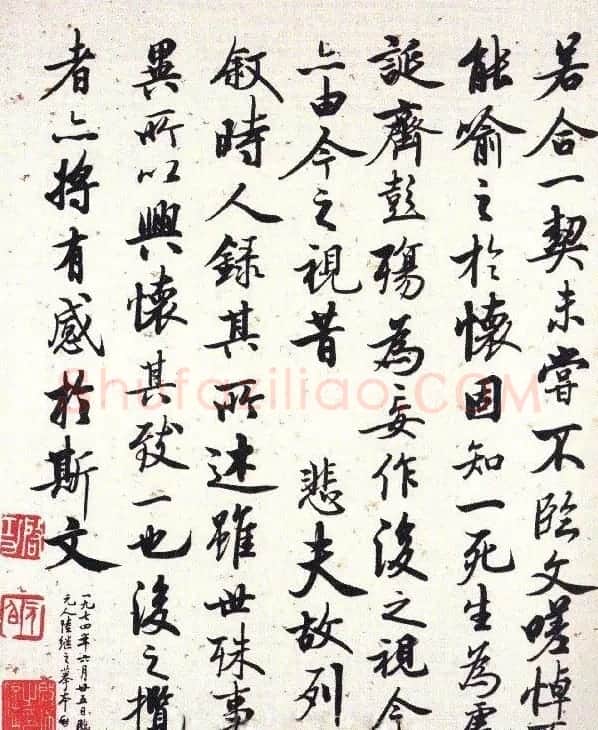 若合一契未嘗不臨文嗟悼
能喻之於懷固知一死生為虛
誕齊彭殤為妄作後之視今
亦由今之視昔 悲夫故列
敘時人錄其所述雖世殊事
異所以興懷其致一也後之攬
者亦將有感於斯文
一九七四年六月廿五日臨
元人陸繼之摹本
Shufaziliao.COM